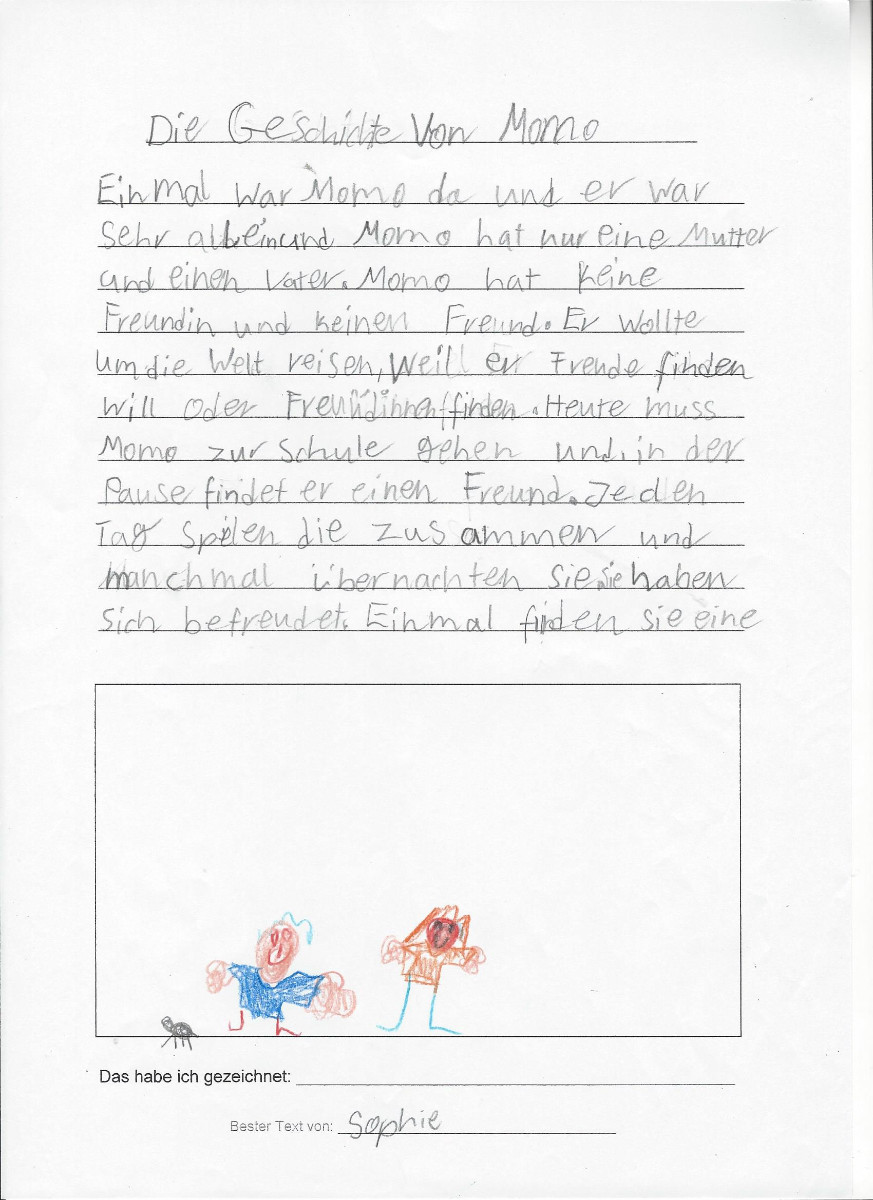 Die Geschichte Von Momo
Einmal war Momo da und er war
sehr allein und Momo hat nur eine Mutter
und einen Vater. Momo hat keine
Freundin und keinen Freund. Er wollte
um die Welt reisen, weill er Freude finden
will oder Freundinnen finden. Heute muss
Momo zur Schule gehen und in der
Pause findet er einen Freund. Jeden
Tag spielen die zusammen und
manchmal übernachten sie sie haben
sich befreudet. Einmal finden sie eine
Das habe ich gezeichnet:
Bester Text von: Sophie